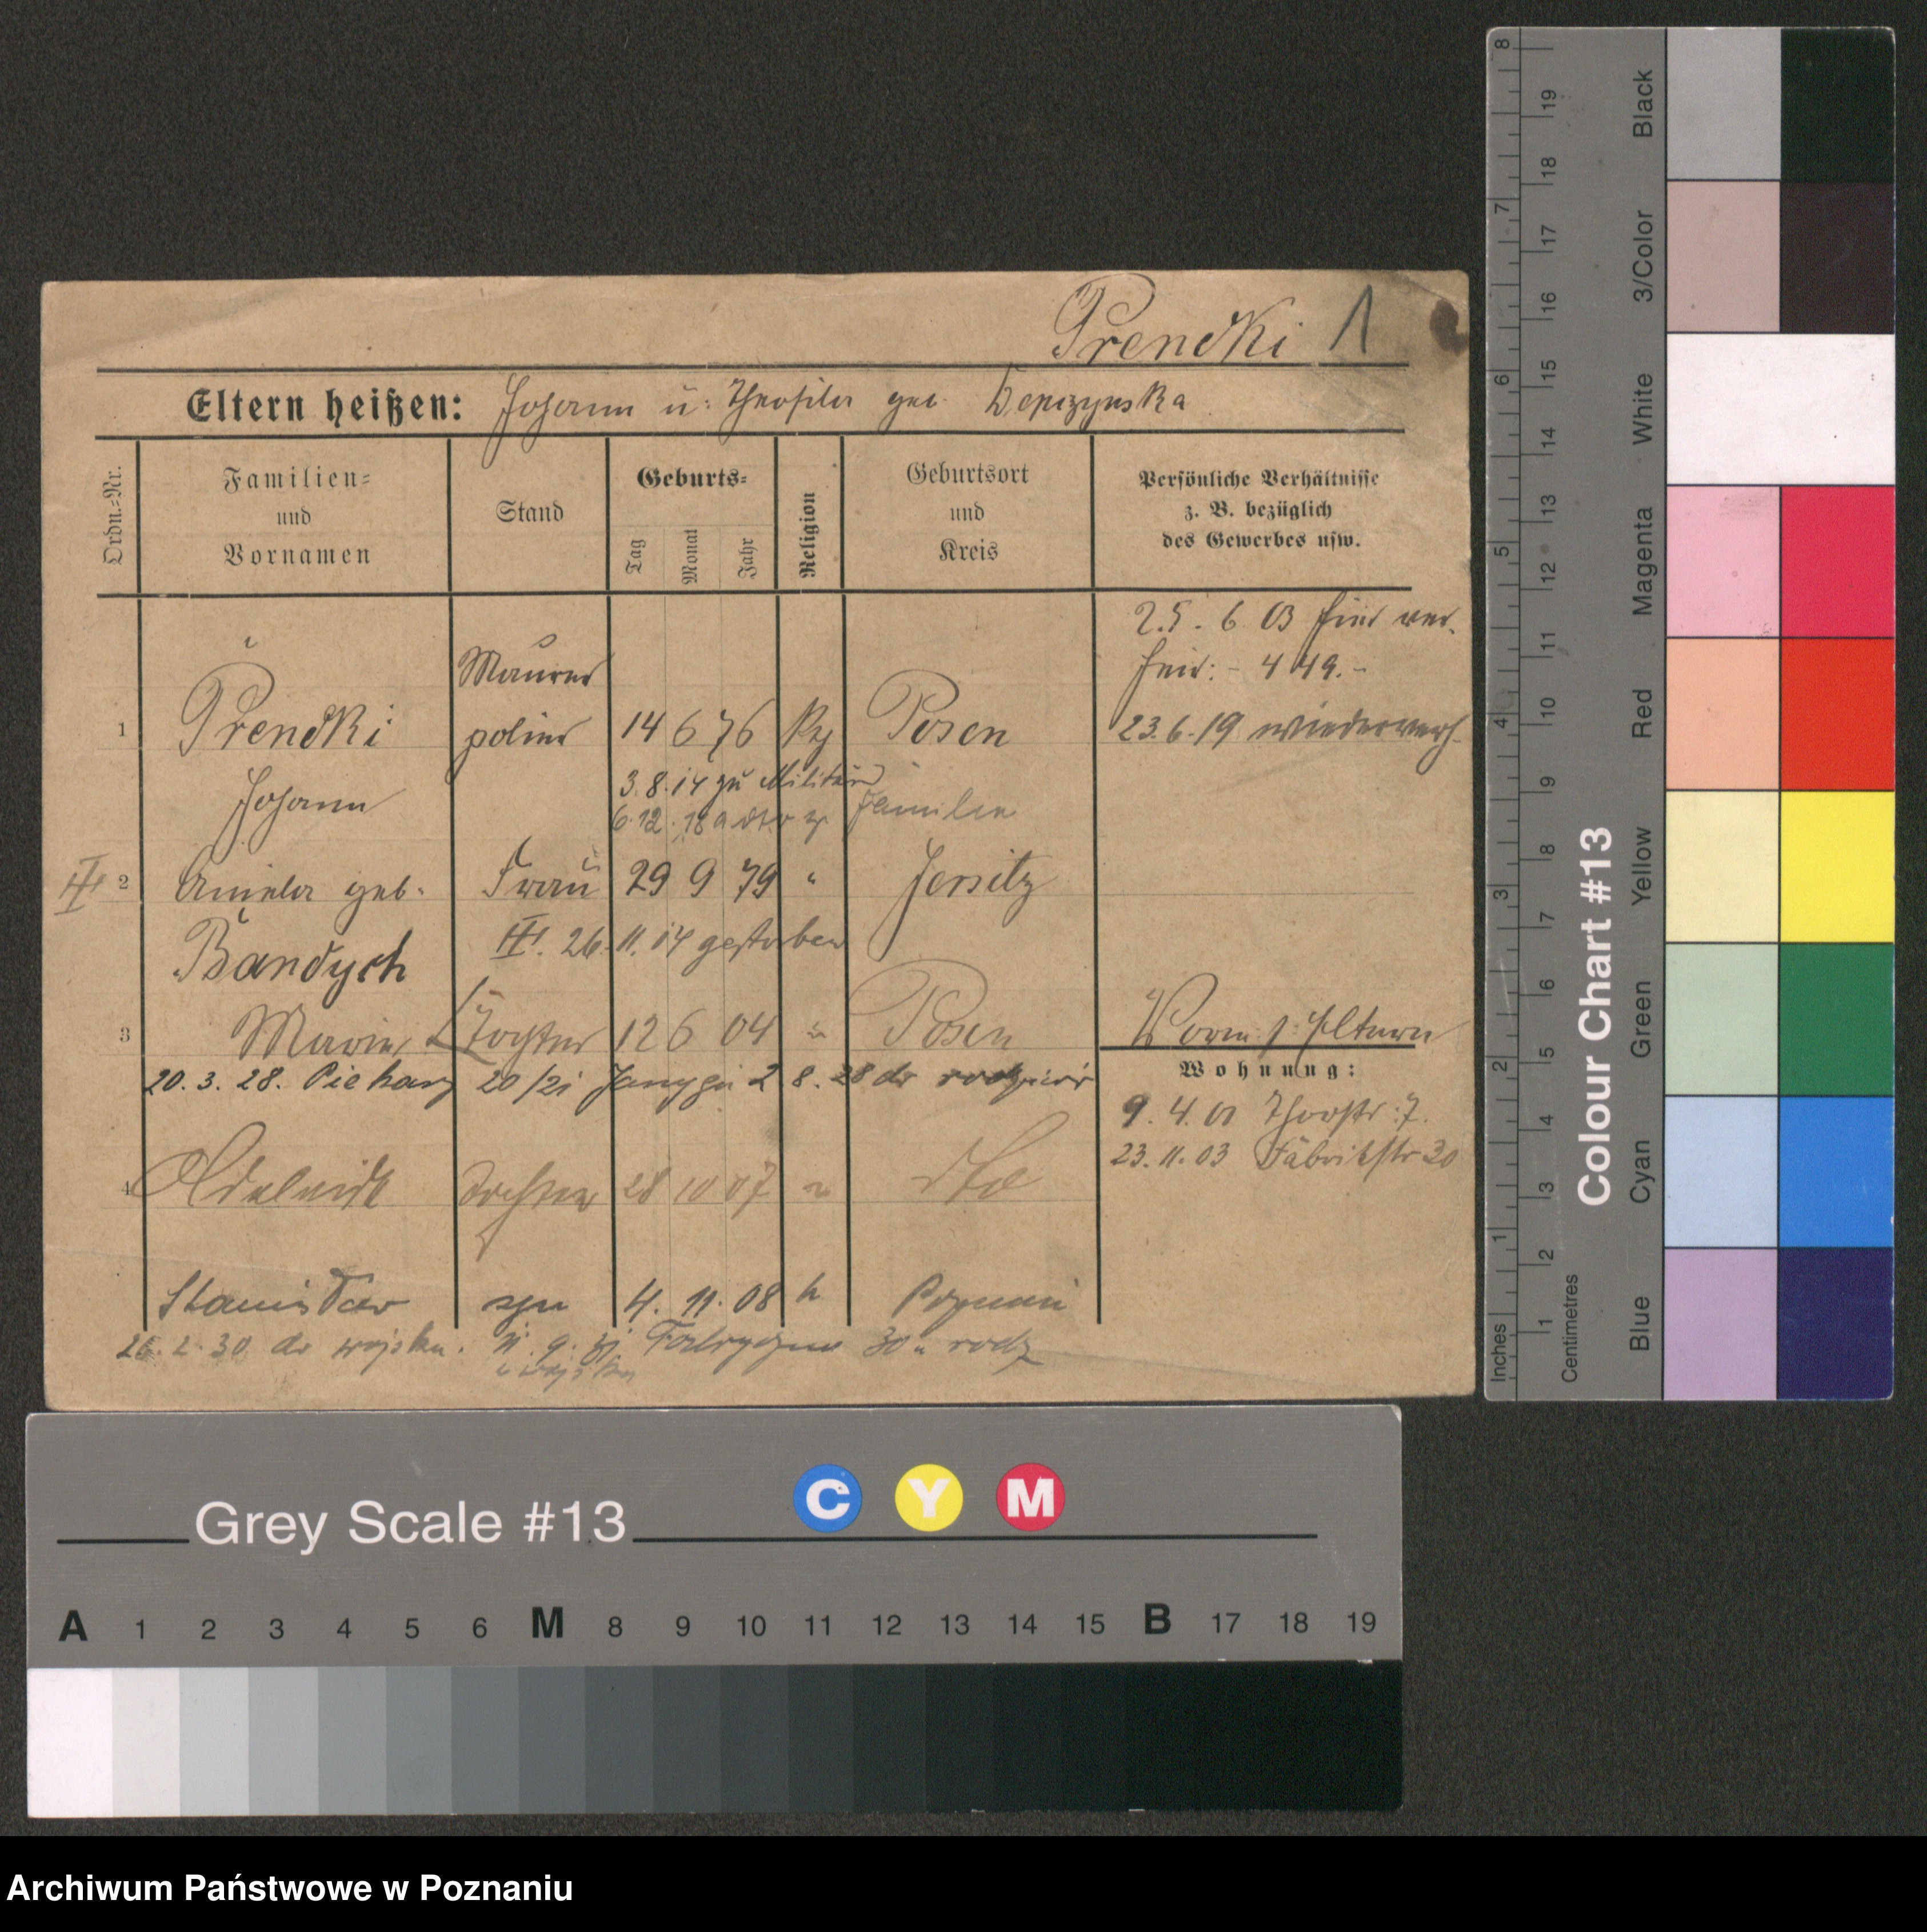 Prendki 1
Eltern heißen: Johann u. Theofila geb. Depczynska
Ordn.-Nr.
Familien-
und
Vornamen
Stand
Geburts-
Tag
Monat
Jahr
Religion
Geburtsort
und
Kreis
Persönliche Verhältnisse
z. B. bezüglich
des Gewerbes usw.
25. 6 03
449.-
23.6.19 wiederverh.
Maurer
1 Prendki polier 14 6 76 Posen
Johann
3.8.14 zu Militär
6.12.18 Familie
III 2 Aniela geb. Frau 29 9 79 " Jersitz
Bandych
III. 26. 11. 14 gestorben
3 Maria Tochter 12 6 04 " Posen
20. 3. 28. Piekary 20/21 2 8. 28 do
4 Adelheid Tochter 28 10 07 " dto
Stanisław syn 4. 11. 08 k Poznań
2. 30 do wojska. 30 u rodz
Vorm. s. Eltern
Wohnung:
9. 4. 01 Thorstr. 7.
23. 11. 03 Fabrikstr 30
Colour Chart #13
Inches
Centimetres
1 2 3 4 5 6 7 8
1 2 3 4 5 6 7 8 9 10 11 12 13 14 15 16 17 18 19
Blue
Cyan
Green
Yellow
Red
Magenta
White
3/Color
Black
Grey Scale #13
C Y M
A 1 2 3 4 5 6 M 8 9 10 11 12 13 14 15 B 17 18 19
Archiwum Państwowe w Poznaniu